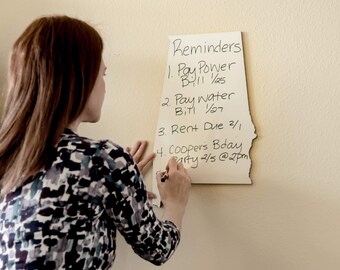 Reminders
1. Pay Power
Bill 1/25
2. Pay Water
Bill 1/27
3. Rent Due 2/1
4. Coopers Bday
Party 2/5 @ 2pm